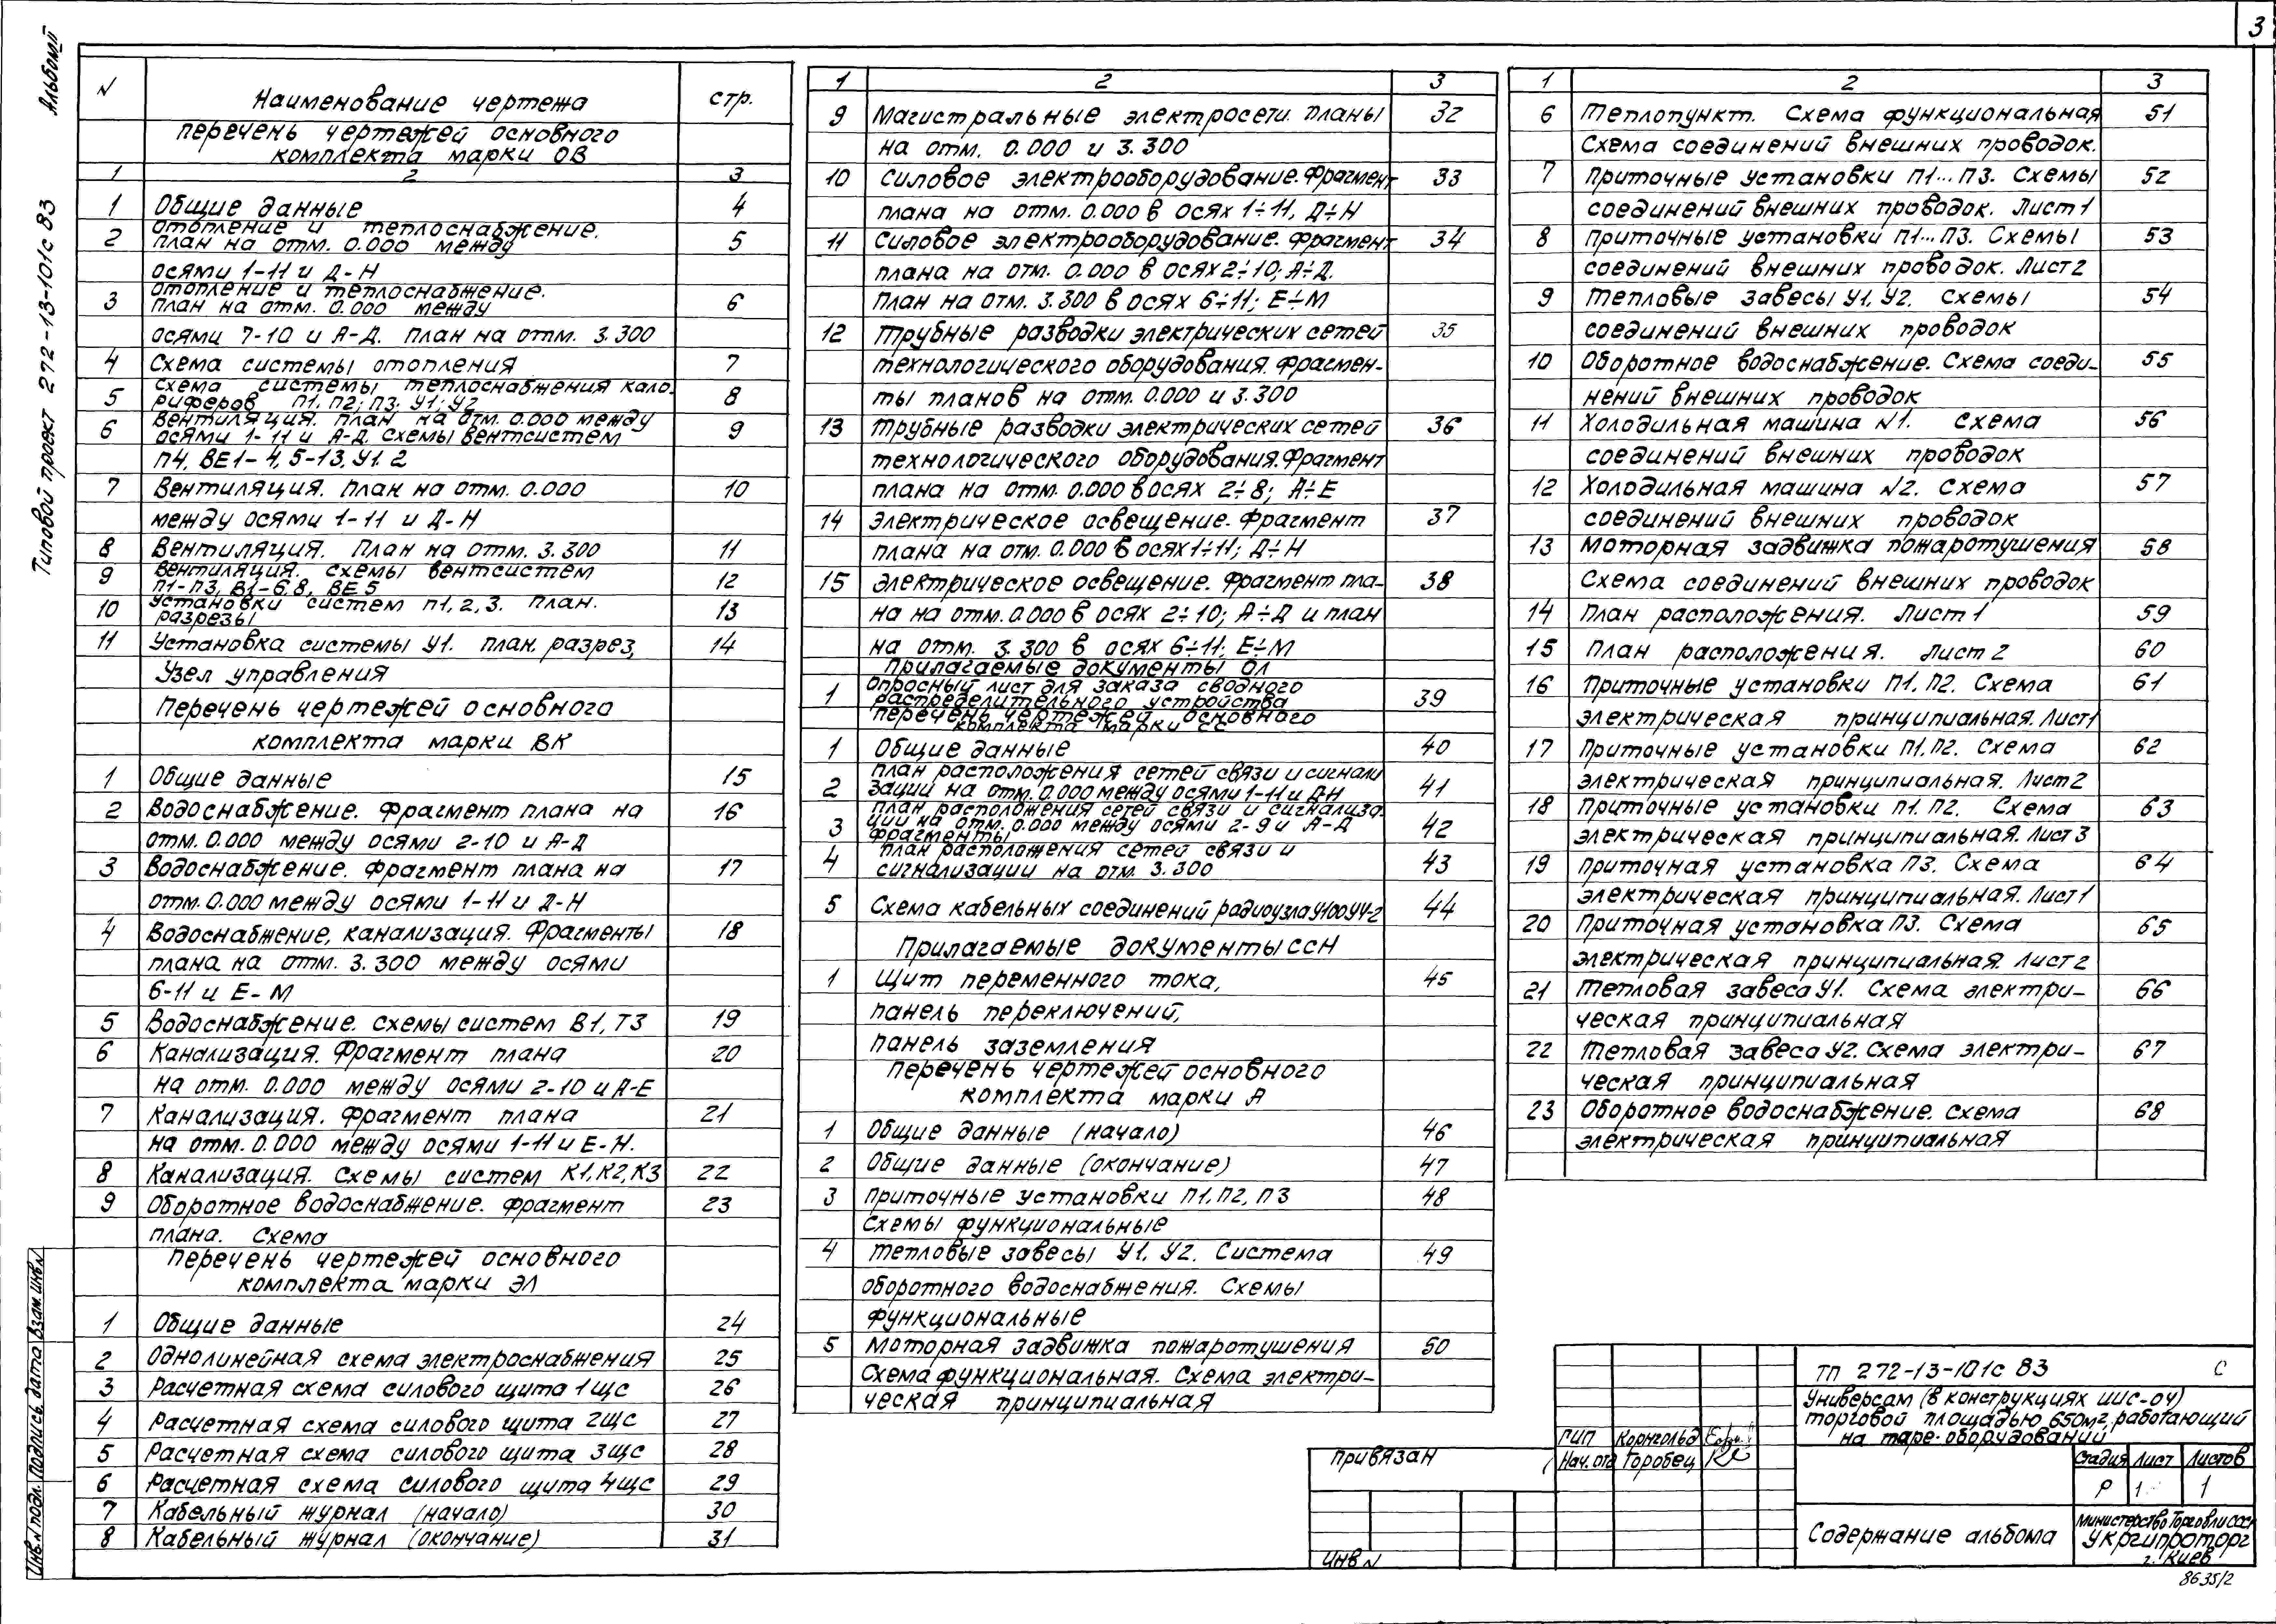 3
Альбом II
Типовой проект 272-13-101с 83
N Наименование чертежа стр.
перечень чертежей основного
комплекта марки ОВ
1 2 3
1 Общие данные 4
2 отопление и теплоснабжение.
план на отм. 0.000 между 5
осями 1-11 и Д-Н
3 отопление и теплоснабжение.
план на отм. 0.000 между 6
осями 7-10 и А-Д. план на отм. 3.300
4 Схема системы отопления 7
5 схема системы теплоснабжения кало-
риферов П1, П2; П3. У1; У2 8
6 вентиляция. план на отм. 0.000 между
осями 1-11 и А-Д. схемы вентсистем 9
П4, ВЕ1-4, 5-13, У1. 2
7 Вентиляция. план на отм. 0.000 10
между осями 1-11 и Д-Н
8 Вентиляция. План на отм. 3.300 11
9 вентиляция. схемы вентсистем
П1-П3, В1-6.8, ВЕ5 12
10 установки систем П1, 2, 3. план.
разрезы 13
11 Установка системы У1. план. разрез, 14
Узел управления
Перечень чертежей основного
комплекта марки ВК
1 Общие данные 15
2 Водоснабжение. Фрагмент плана на 16
отм. 0.000 между осями 2-10 и А-Д
3 Водоснабжение. Фрагмент плана на 17
отм. 0.000 между осями 1-11 и Д-Н
4 Водоснабжение, канализация. Фрагменты 18
плана на отм. 3.300 между осями
6-11 и Е-М
5 Водоснабжение. Схемы систем В1, Т3 19
6 Канализация. Фрагмент плана 20
на отм. 0.000 между осями 2-10 и А-Е
7 Канализация. Фрагмент плана 21
на отм. 0.000 между осями 1-11 и Е-Н.
8 Канализация. Схемы систем К1, К2, К3 22
9 Оборотное водоснабжение. Фрагмент 23
плана. Схема
перечень чертежей основного
комплекта марки ЭЛ
1 Общие данные 24
2 Однолинейная схема электроснабжения 25
3 Расчетная схема силового щита 1ЩС 26
4 Расчетная схема силового щита 2ЩС 27
5 Расчетная схема силового щита 3ЩС 28
6 Расчетная схема силового щита 4ЩС 29
7 Кабельный журнал (начало) 30
8 Кабельный журнал (окончание) 31
1 2 3
9 Магистральные электросети. планы 32
на отм. 0.000 и 3.300
10 Силовое электрооборудование. Фрагмент 33
плана на отм. 0.000 в осях 1÷11, Д÷Н
11 Силовое электрооборудование. Фрагмент 34
плана на отм. 0.000 в осях 2÷10; А÷Д.
план на отм. 3.300 в осях 6÷11; Е÷М
12 Трубные разводки электрических сетей 35
технологического оборудования. Фрагмен-
ты планов на отм. 0.000 и 3.300
13 Трубные разводки электрических сетей 36
технологического оборудования. Фрагмент
плана на отм. 0.000 в осях 2÷8; А÷Е
14 Электрическое освещение. Фрагмент 37
плана на отм. 0.000 в осях 1÷11; Д÷Н
15 Электрическое освещение. Фрагмент пла- 38
на на отм. 0.000 в осях 2÷10; А÷Д и план
на отм. 3.300 в осях 6÷11; Е÷М
прилагаемые документы ОЛ
1 опросный лист для заказа сводного
распределительного устройства 39
перечень чертежей основного
комплекта марки СС
1 Общие данные 40
2 план расположения сетей связи и сигнали
зации на отм. 0.000 между осями 1-11 и Д-Н 41
3 план расположения сетей связи и сигнализа-
ции на отм. 0.000 между осями 2-9 и А-Д 42
фрагменты
4 план расположения сетей связи и
сигнализации на отм. 3.300 43
5 Схема кабельных соединений радиоузла У100У4-2 44
Прилагаемые документы ССН
1 Щит переменного тока, 45
панель переключений,
панель заземления
перечень чертежей основного
комплекта марки А
1 Общие данные (начало) 46
2 Общие данные (окончание) 47
3 Приточные установки П1, П2, П3 48
Схемы функциональные
4 Тепловые завесы У1, У2. Система 49
оборотного водоснабжения. Схемы
функциональные
5 Моторная задвижка пожаротушения 50
Схема функциональная. Схема электри-
ческая принципиальная
1 2 3
6 Теплопункт. Схема функциональная 51
Схема соединений внешних проводок.
7 Приточные установки П1...П3. Схемы 52
соединений внешних проводок. Лист 1
8 Приточные установки П1...П3. Схемы 53
соединений внешних проводок. Лист 2
9 Тепловые завесы У1, У2. Схемы 54
соединений внешних проводок
10 Оборотное водоснабжение. Схема соеди- 55
нений внешних проводок
11 Холодильная машина N1. Схема 56
соединений внешних проводок
12 Холодильная машина N2. Схема 57
соединений внешних проводок
13 Моторная задвижка пожаротушения 58
Схема соединений внешних проводок
14 План расположения. Лист 1 59
15 План расположения. Лист 2 60
16 Приточные установки П1, П2. Схема 61
электрическая принципиальная. Лист 1
17 Приточные установки П1, П2. Схема 62
электрическая принципиальная. Лист 2
18 Приточные установки П1. П2. Схема 63
электрическая принципиальная. Лист 3
19 Приточная установка П3. Схема 64
электрическая принципиальная. Лист 1
20 Приточная установка П3. Схема 65
электрическая принципиальная. Лист 2
21 Тепловая завеса У1. Схема электри- 66
ческая принципиальная
22 Тепловая завеса У2. Схема электри- 67
ческая принципиальная
23 Оборотное водоснабжение. схема 68
электрическая принципиальная
ТП 272-13-101с 83 С
Универсам (в конструкциях ИИС-04)
торговой площадью 650м2, работающий
на таре-оборудовании
ГИП Корнгольд
Нач. отд Горобец
Стадия Лист Листов
Р 1 1
Содержание альбома
Министерство Торговли СССР
Укргипроторг
г. Киев
8635/2
Привязан
Инв N
Инв. N подл. Подпись, дата Взам. инв. N